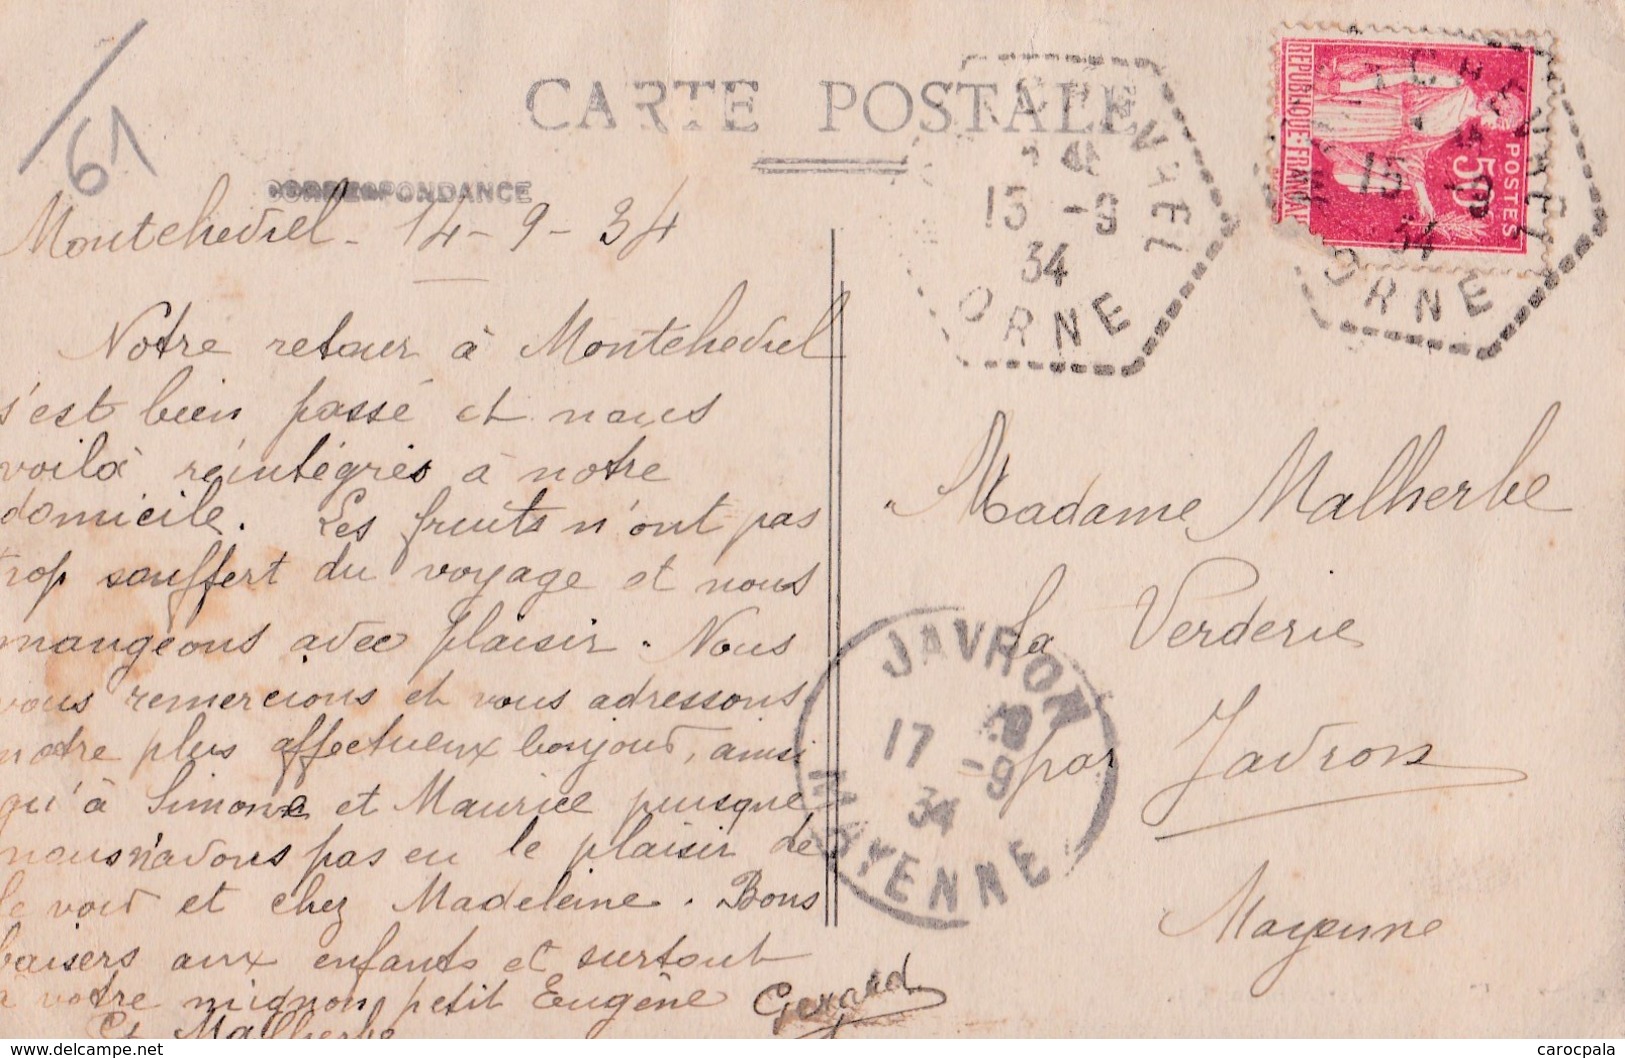 61
CARTE POSTALE
CORRESPONDANCE
Montchevrel - 14 - 9 - 34
Notre retour à Montchevrel
s'est bien passé et nous
voilà réintégrés à notre
domicile. Les fruits n'ont pas
trop souffert du voyage et nous
mangeons avec plaisir. Nous
vous remercions et vous adressons
notre plus affectueux bonjour, ainsi
qu'à Simone et Maurice puisque
nous n'avons pas eu le plaisir de
le voir et chez Madeleine. Bons
baisers aux enfants et surtout
à votre mignon petit Eugène Gérard
Et Malherbe
REPUBLIQUE FRANÇAI
POSTES
50
15
9
34
ORNE
MONTCHEVREL
13 - 9
34
ORNE
JAVRON
17 - 9
34
MAYENNE
Madame Malherbe
La Verderie
par Javron
Mayenne
www.delcampe.net
carocpala